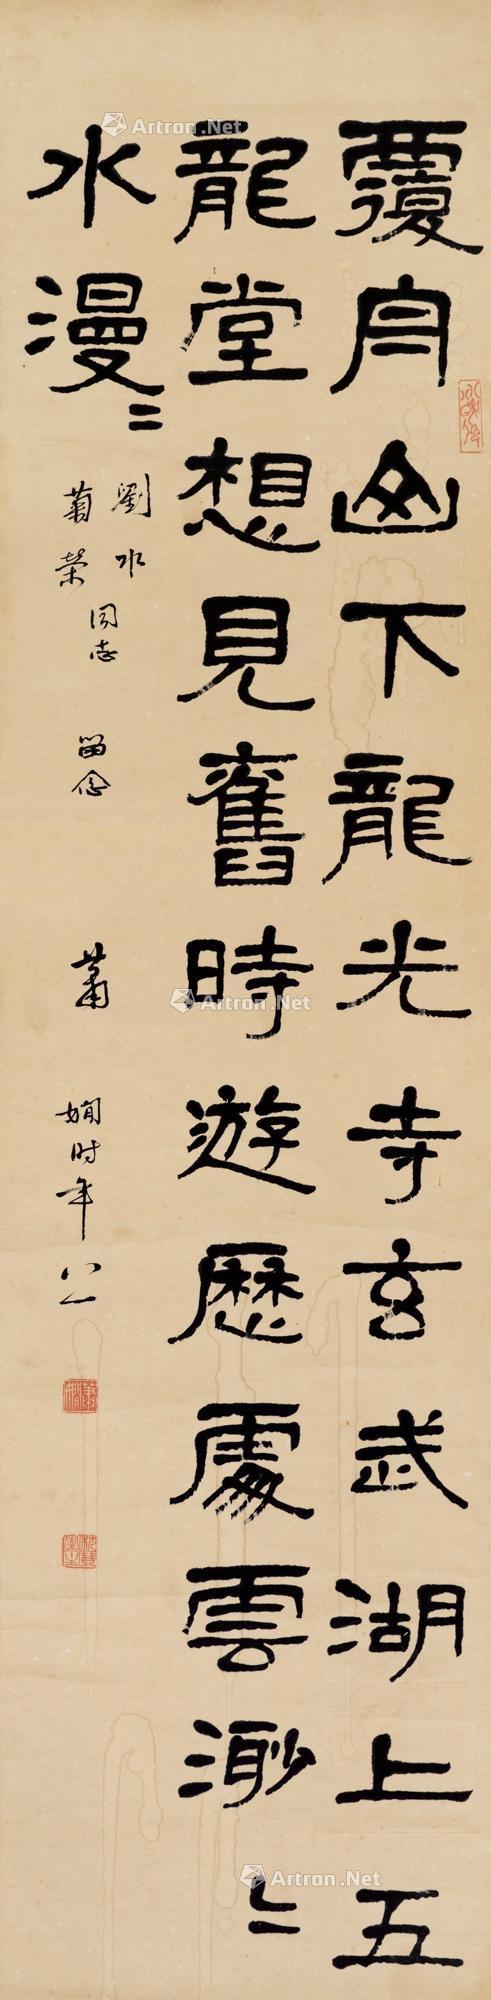 覆舟山下龍光寺玄武湖上五
龍堂想見舊時遊歷處雲渺〻
水漫〻
劉水
菊榮
同志 留念 蕭嫻时年八一
Artron.Net
Artron.Net
Artron.Net
Artron.Net
Artron.Net
Artron.Net